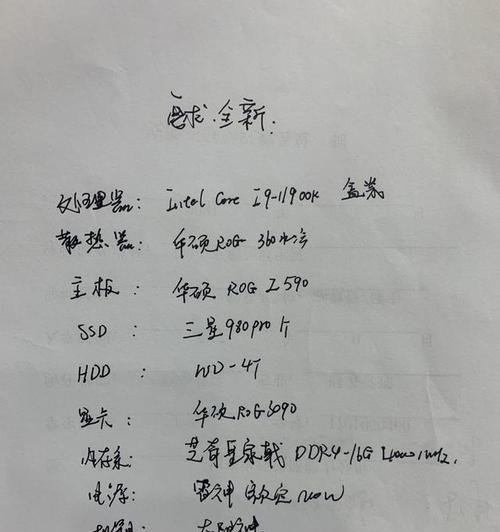 要求:全新.
处理器: Intel Core I9-11900k 盒装
散热器: 华硕ROG 360水冷
主板: 华硕 ROG Z590
SSD: 三星980pro 1T
HDD: WD-4T
显卡: 华硕ROG3090
内存条: 芝奇皇家戟 DDR4-16G
电源: 雷神